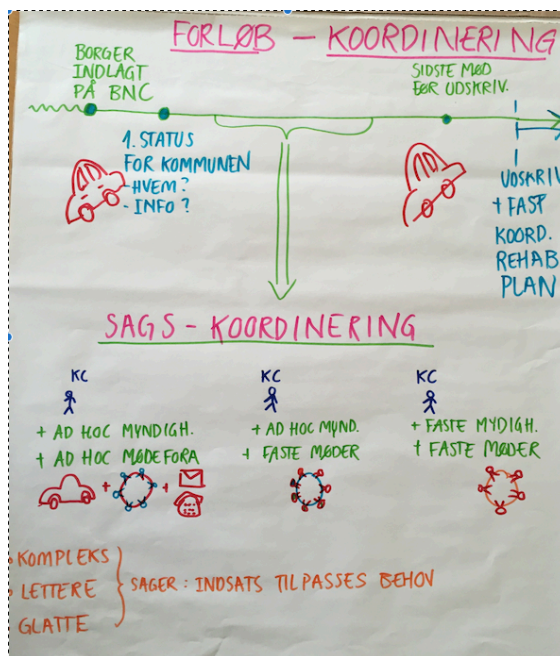 FORLØB - KOORDINERING
BORGER
INDLAGT
PÅ BNC
SIDSTE MØD
FØR UDSKRIV.
1. STATUS
FOR KOMMUNEN
- HVEM?
- INFO?
UDSKRIV
+ FAST
KOORD.
REHAB
PLAN
SAGS - KOORDINERING
KC
+ AD HOC MYNDIGH.
+ AD HOC MØDEFORA
+
+
KC
+ AD HOC MYND.
+ FASTE MØDER
KC
+ FASTE MYDIGH.
+ FASTE MØDER
- KOMPLEKS
- LETTERE
GLATTE
SAGER: INDSATS TILPASSES BEHOV